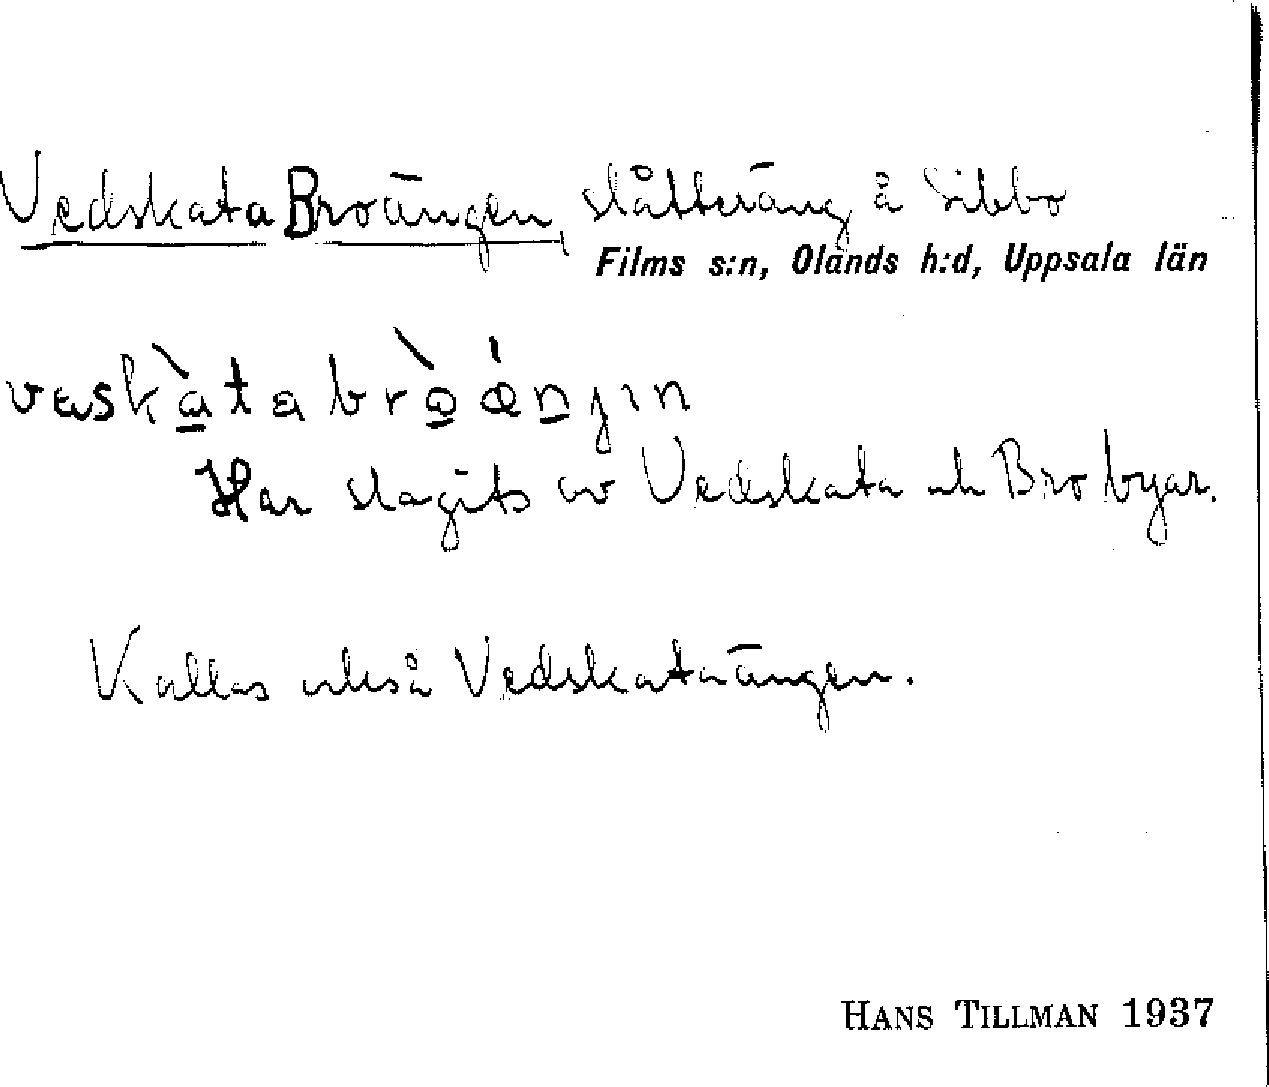 Vedskata Broängen, slåtteräng å Sibbo
Films s:n, Olands h:d, Uppsala län
vɐskàta bròǽnjin
Har slagits av Vedskata och Bro byar.
Kallas också Vedskataängen.
HANS TILLMAN 1937